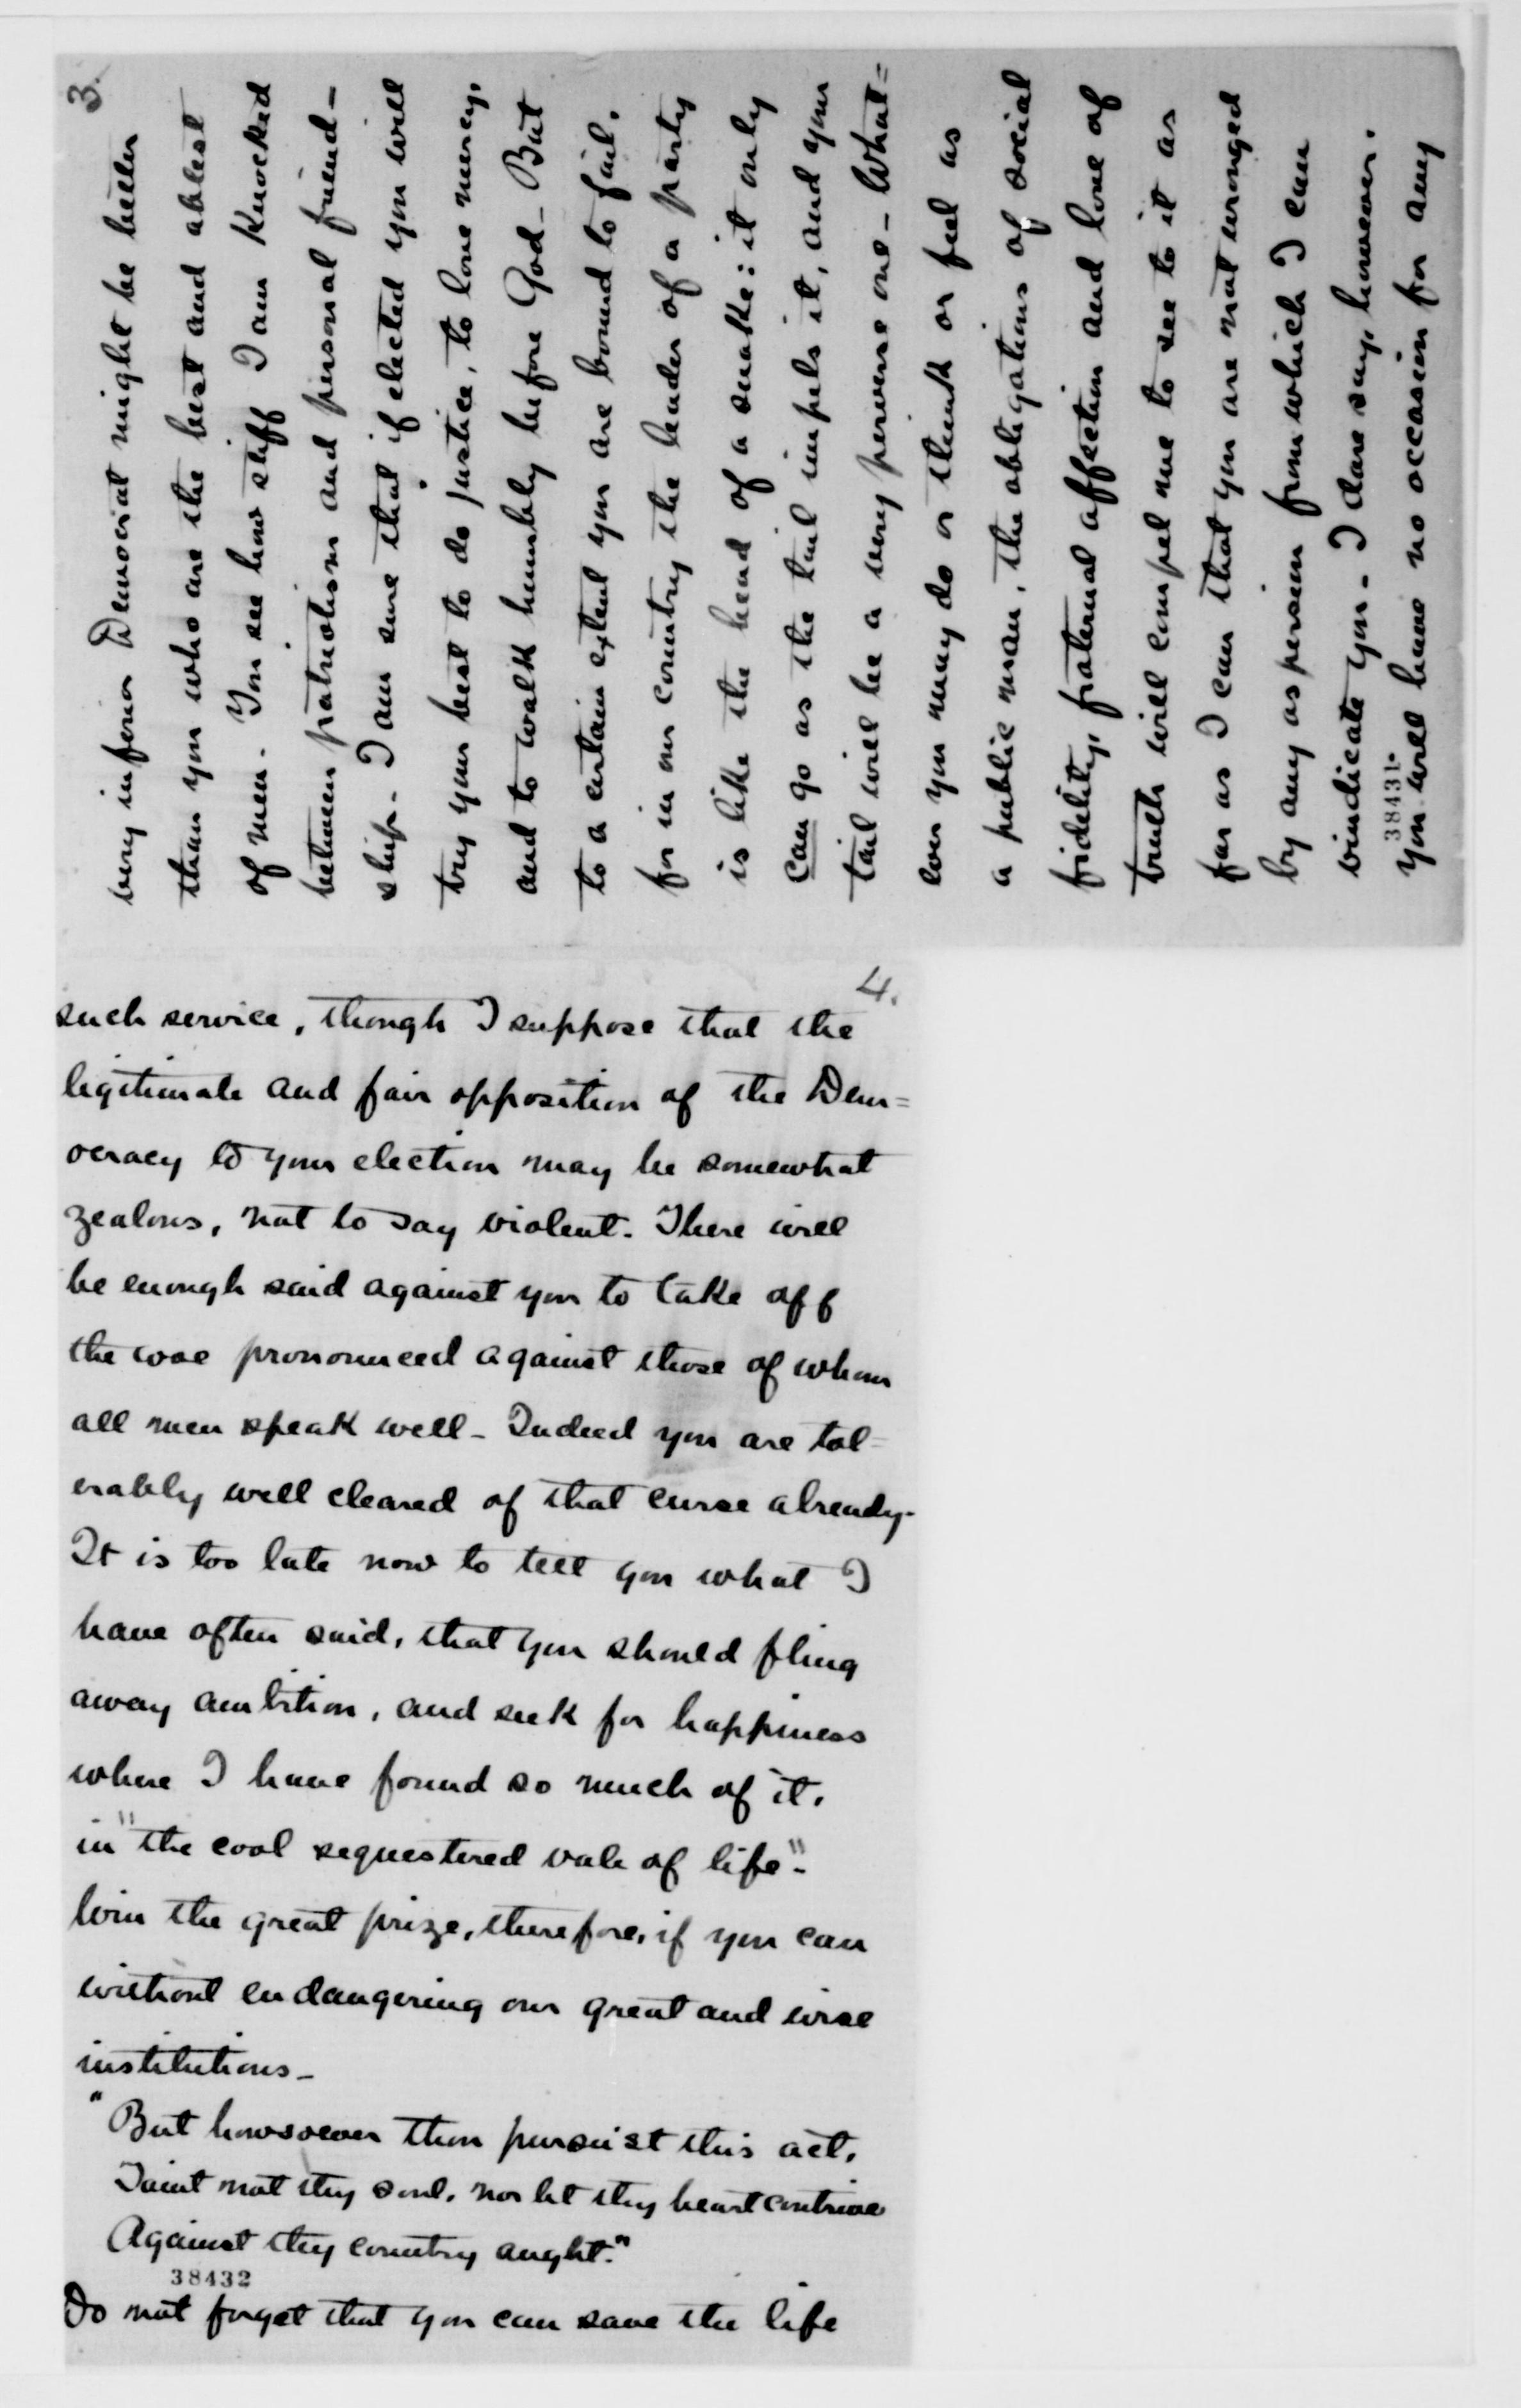 3.
very inferior Democrat might be better
than you who are the best and ablest
of men. You see how stiff I am knocked
between patriotism and personal friend-
ship. I am sure that if elected you will
try your best to do justice, to love mercy,
and to walk humbly before God. But
to a certain extent you are bound to fail,
for in our country the leader of a party
is like the head of a snake: it only
can go as the tail impels it, and your
tail will be a very perverse one. What=
ever you may do or think or feel as
a public man, the obligations of social
fidelity, fraternal affection and love of
truth will compel me to see to it as
far as I can that you are not wronged
by any aspersion from which I can
vindicate you. I dare say, however,
you will have no occasion for any
38431.
4.
such service, though I suppose that the
legitimate and fair opposition of the Dem=
ocracy to your election may be somewhat
zealous, not to say violent. There will
be enough said against you to take off
the woe pronounced against those of whom
all men speak well - Indeed you are tol=
erably well cleared of that curse already.
It is too late now to tell you what I
have often said, that you should fling
away ambition, and seek for happiness
where I have found so much of it,
in "the cool sequestered vale of life".
Win the great prize, therefore, if you can
without endangering our great and wise
institutions -
"But howsoever thou pursuist this act,
Taint not thy soul, nor let thy heart contrive
Against thy country aught."
38432
Do not forget that you can save the life